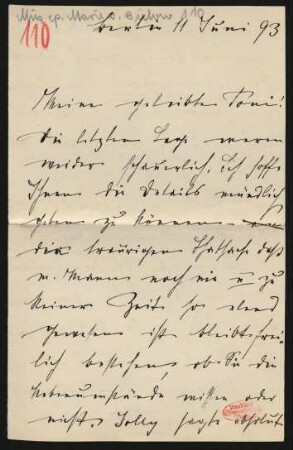 110
Berlin 11 Juni 93
Meine geliebte Toni!
Die letzten Tage waren
wieder schauerlich, ich hoffe
Ihnen die Details mündlich
geben zu können
die traurigen Thatsache daß
m. Mann noch nie u zu
keiner Zeit so elend
gewesen ist bleibt frei-
lich bestehen, ob Sie die
Nebenumstände wissen oder
nicht. Jolly sagte absolut